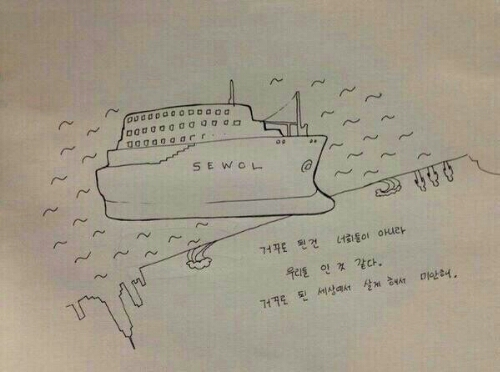 SEWOL
거꾸로 된건 너희들이 아니라
우리들 인 것 같다.
거꾸로 된 세상에서 살게 해서 미안해.